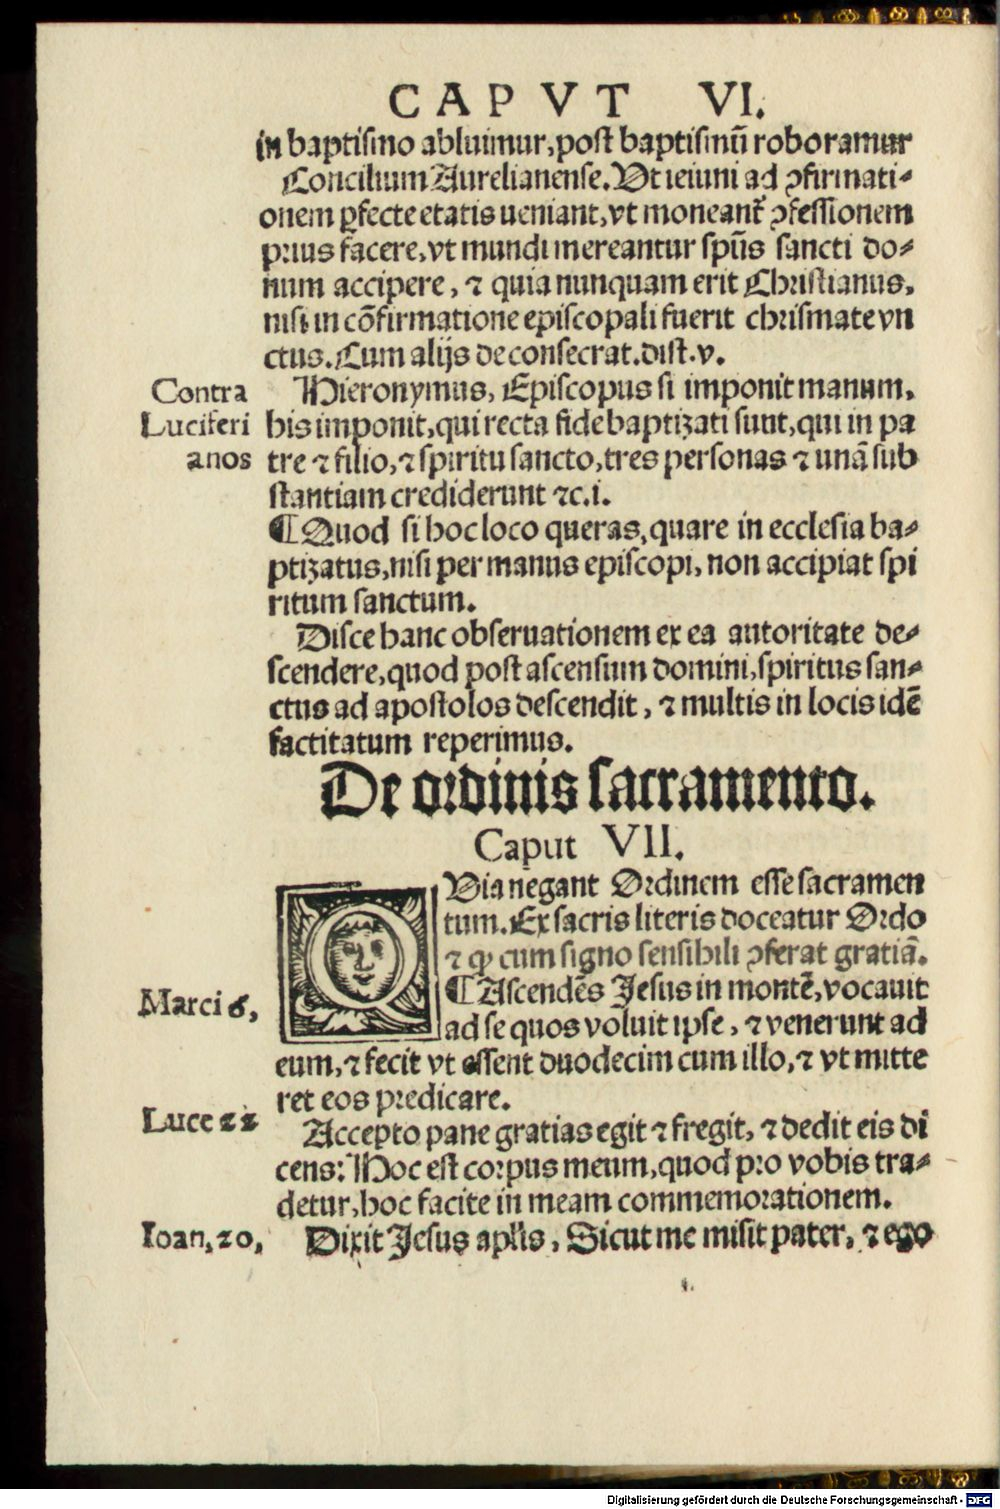 CAPVT VI.
in baptismo abluimur, post baptismū roboramur
Concilium Aurelianense. Vt ieiuni ad ꝯfirmati⸗
onem ꝑfecte etatis ueniant, vt moneant᷑ ꝯfessionem
prius facere, vt mundi mereantur spūs sancti do⸗
num accipere, ⁊ quia nunquam erit Christianus,
nisi in cōfirmatione episcopali fuerit chrismate vn
ctus. Cum alijs de consecrat. dist. v.
Contra
Luciferi
anos
Hieronymus, Episcopus si imponit manum,
his imponit, qui recta fide baptizati sunt, qui in pa
tre ⁊ filio, ⁊ spiritu sancto, tres personas ⁊ unā sub
stantiam crediderunt ⁊c. i.
¶ Quod si hoc loco queras, quare in ecclesia ba⸗
ptizatus, nisi per manus episcopi, non accipiat spi
ritum sanctum.
Disce hanc obseruationem ex ea autoritate de⸗
scendere, quod post ascensum domini, spiritus san⸗
ctus ad apostolos descendit, ⁊ multis in locis idē
factitatum reperimus.
De ordinis sacramento.
Caput VII.
QVia negant Ordinem esse sacramen
tum. Ex sacris literis doceatur Ordo
⁊ ꝙ cum signo sensibili ꝯferat gratiā.
Marci 6,
¶ Ascendēs Jesus in montē, vocauit
ad se quos voluit ipse, ⁊ venerunt ad
eum, ⁊ fecit vt essent duodecim cum illo, ⁊ vt mitte
ret eos predicare.
Luce 22
Accepto pane gratias egit ⁊ fregit, ⁊ dedit eis di
cens: Hoc est corpus meum, quod pro vobis tra⸗
detur, hoc facite in meam commemorationem.
Ioan, 20,
Dixit Jesus aplis, Sicut me misit pater, ⁊ ego
Digitalisierung gefördert durch die Deutsche Forschungsgemeinschaft - DFG